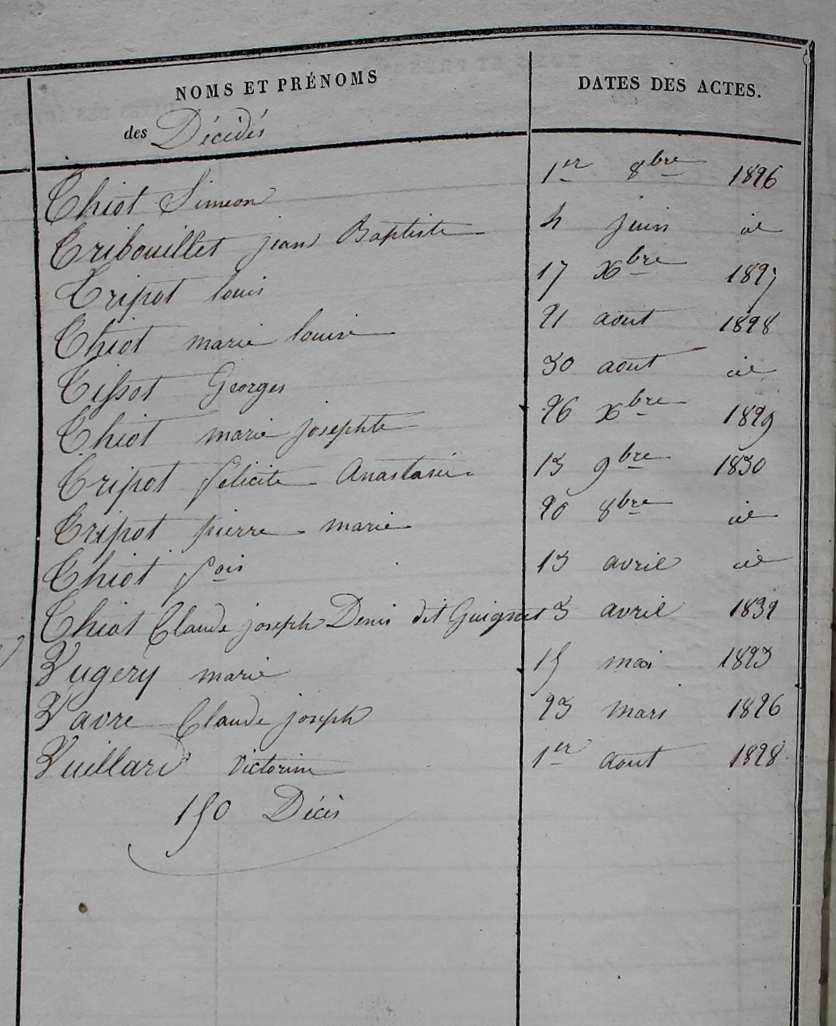 NOMS ET PRÉNOMS DATES DES ACTES.
des Décédés
Thiot Simeon 1er 8bre 1826
Tribouillet jean Baptiste 4 juin id
Tripot louis 17 Xbre 1827
Thiot marie louise 21 aout 1828
Tissot Georges 30 aout id
Thiot marie josephte 26 Xbre 1829
Tripot félicité Anastasie 13 9bre 1830
Tripot pierre marie 20 8bre id
Thiot fois 13 avril id
Thiot Claude joseph Denis dit Guignet 3 avril 1832
Vugery marie 15 mai 1823
Vavre Claude joseph 23 mars 1826
Vuillard victorine 1er aout 1828
150 Décès